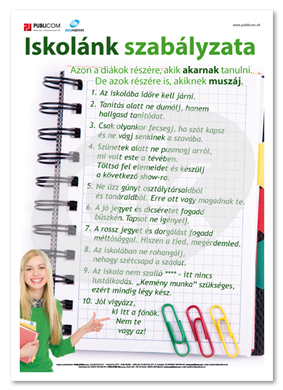 PUBLICOM
www.publicom.sk
Iskolánk szabályzata
Azon a diákok részére, akik akarnak tanulni.
De azok részére is, akiknek muszáj.
1. Az iskolába időre kell járni.
2. Tanítás alatt ne dumálj, hanem
hallgasd tanítódat.
3. Csak olyankor fecsegj, ha szót kapsz
és ne vágj senkinek a szavába.
4. Szünetek alatt ne pusmogj arról,
mi volt este a tévében.
Töltsd fel elemeidet és készülj
a következő show-ra.
5. Ne űzz gúnyt osztálytársaidból
és tanáraidból. Erre ott vagy magadnak te.
6. A jó jegyet és dicséretet fogadd
büszkén. Tapsot ne igényelj.
7. A rossz jegyet és dorgálást fogadd
méltósággal. Hiszen a tied, megérdemled.
8. Az iskolában ne rohangálj,
nehogy szétcsapd a szádat.
9. Az iskola nem szálló **** - itt nincs
lustálkodás. „Kemény munka” szükséges,
ezért mindig légy kész.
10. Jól vigyázz,
ki itt a főnök.
Nem te
vagy az!